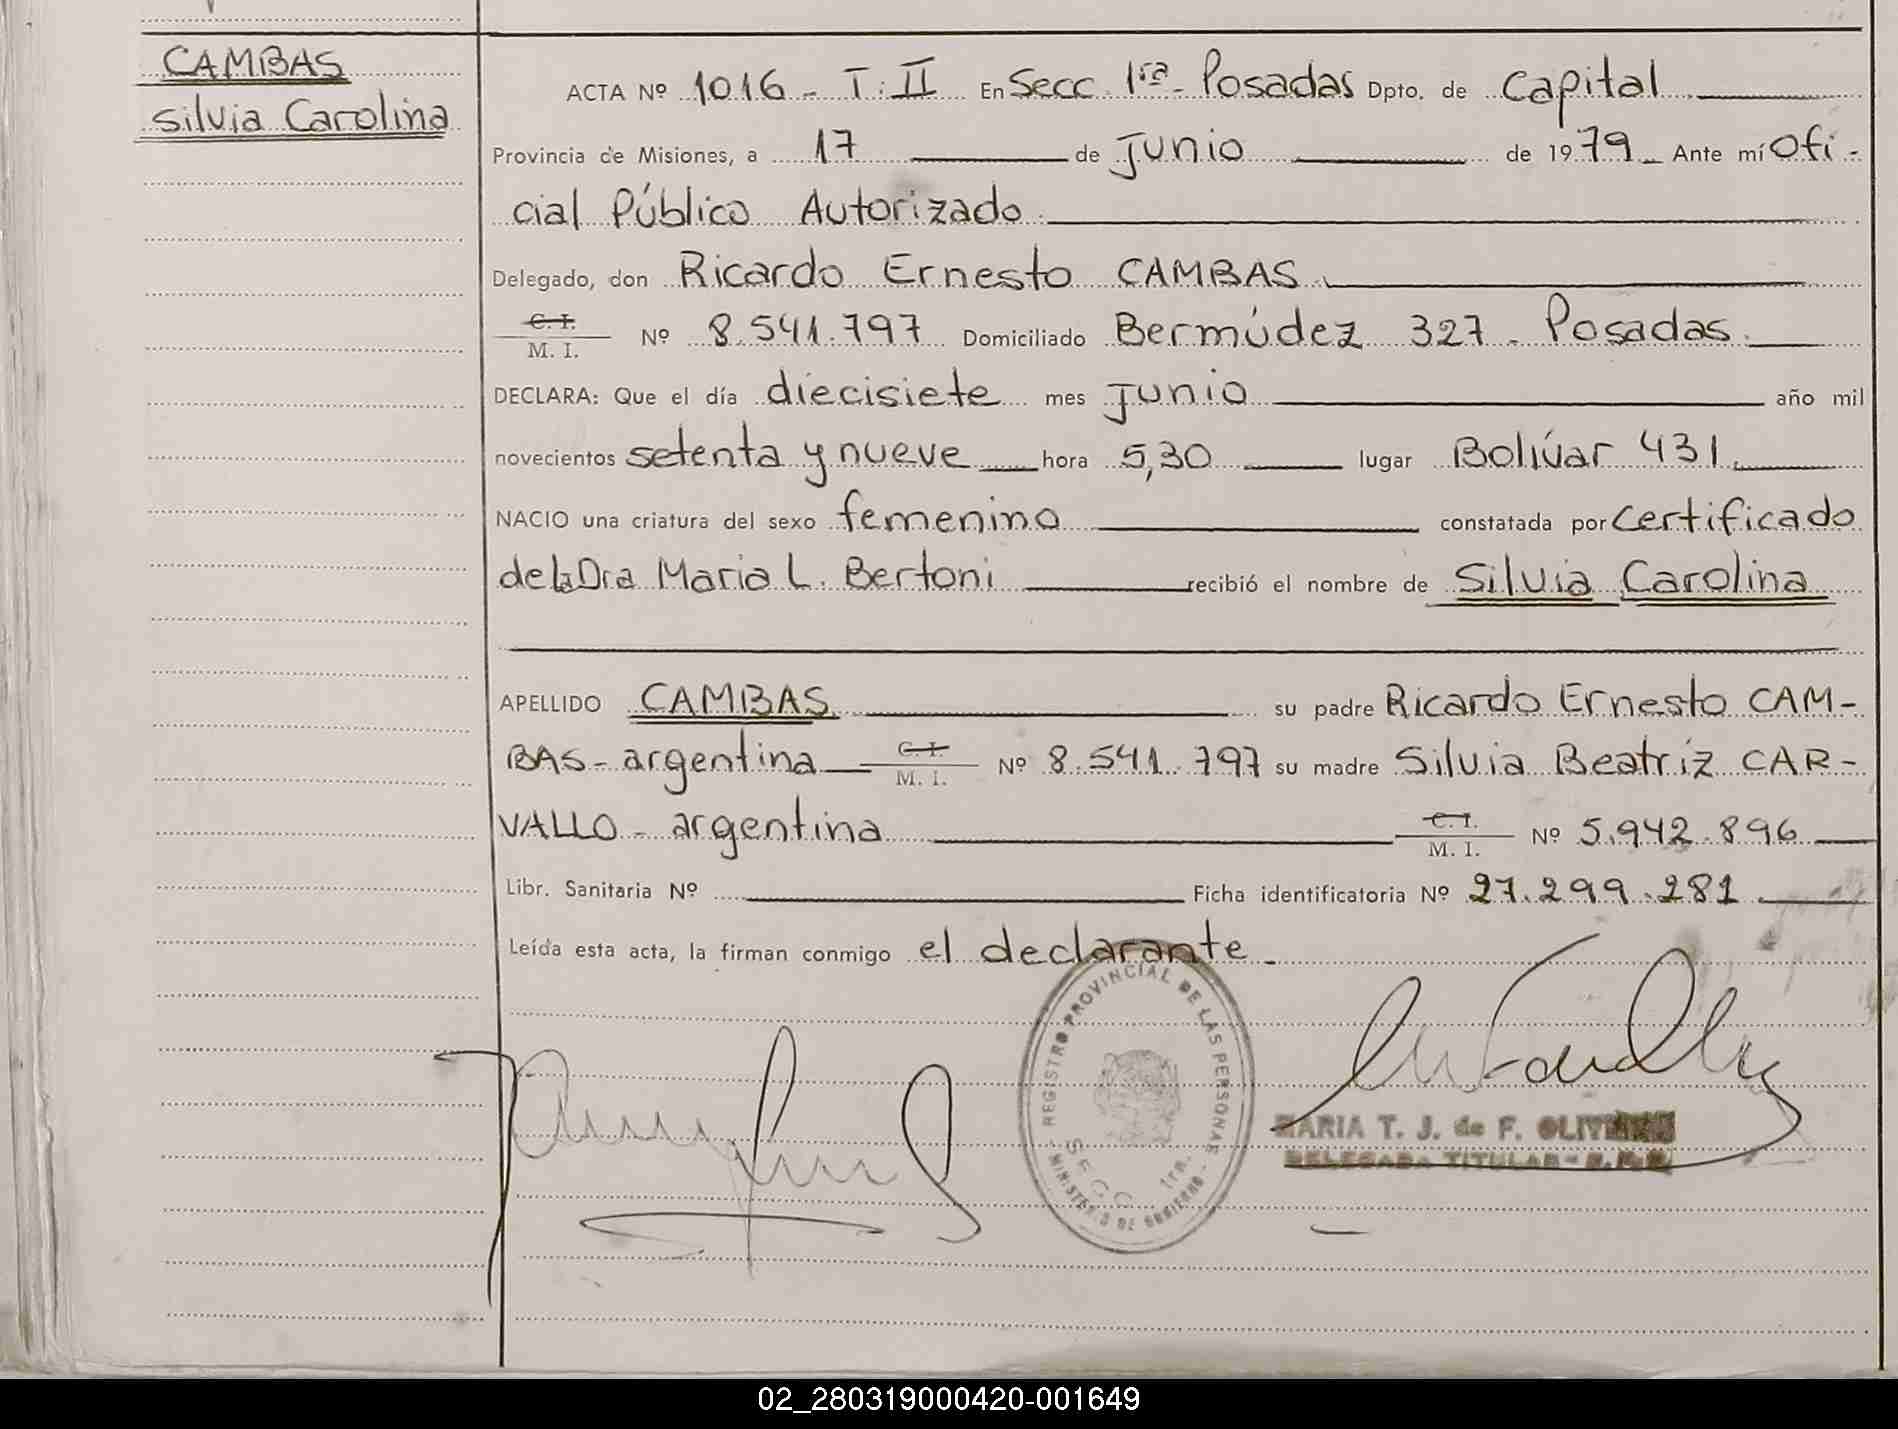 CAMBAS
Silvia Carolina
ACTA Nº 1016 - T: II En Secc. 1ra - Posadas Dpto. de Capital
Provincia de Misiones, a 17 de Junio de 1979 Ante mí Ofi-
cial Público Autorizado
Delegado, don Ricardo Ernesto CAMBAS
C. I.
M. I. Nº 8.541.797 Domiciliado Bermúdez 327 - Posadas
DECLARA: Que el día diecisiete mes Junio año mil
novecientos setenta y nueve hora 5,30 lugar Bolívar 431
NACIO una criatura del sexo femenino constatada por certificado
de la Dra Maria L. Bertoni recibió el nombre de Silvia Carolina
APELLIDO CAMBAS su padre Ricardo Ernesto CAM-
BAS - argentina C. I. M. I. Nº 8.541.797 su madre Silvia Beatriz CAR-
VALLO - argentina C. I. M. I. Nº 5.942.896
Libr. Sanitaria Nº Ficha identificatoria Nº 27.299.281
Leída esta acta, la firman conmigo el declarante.
REGISTRO PROVINCIAL DE LAS PERSONAS
SECC. 1ra.
MINISTERIO DE GOBIERNO
MARIA T. J. de F.
DELEGADA TITULAR
02_280319000420-001649